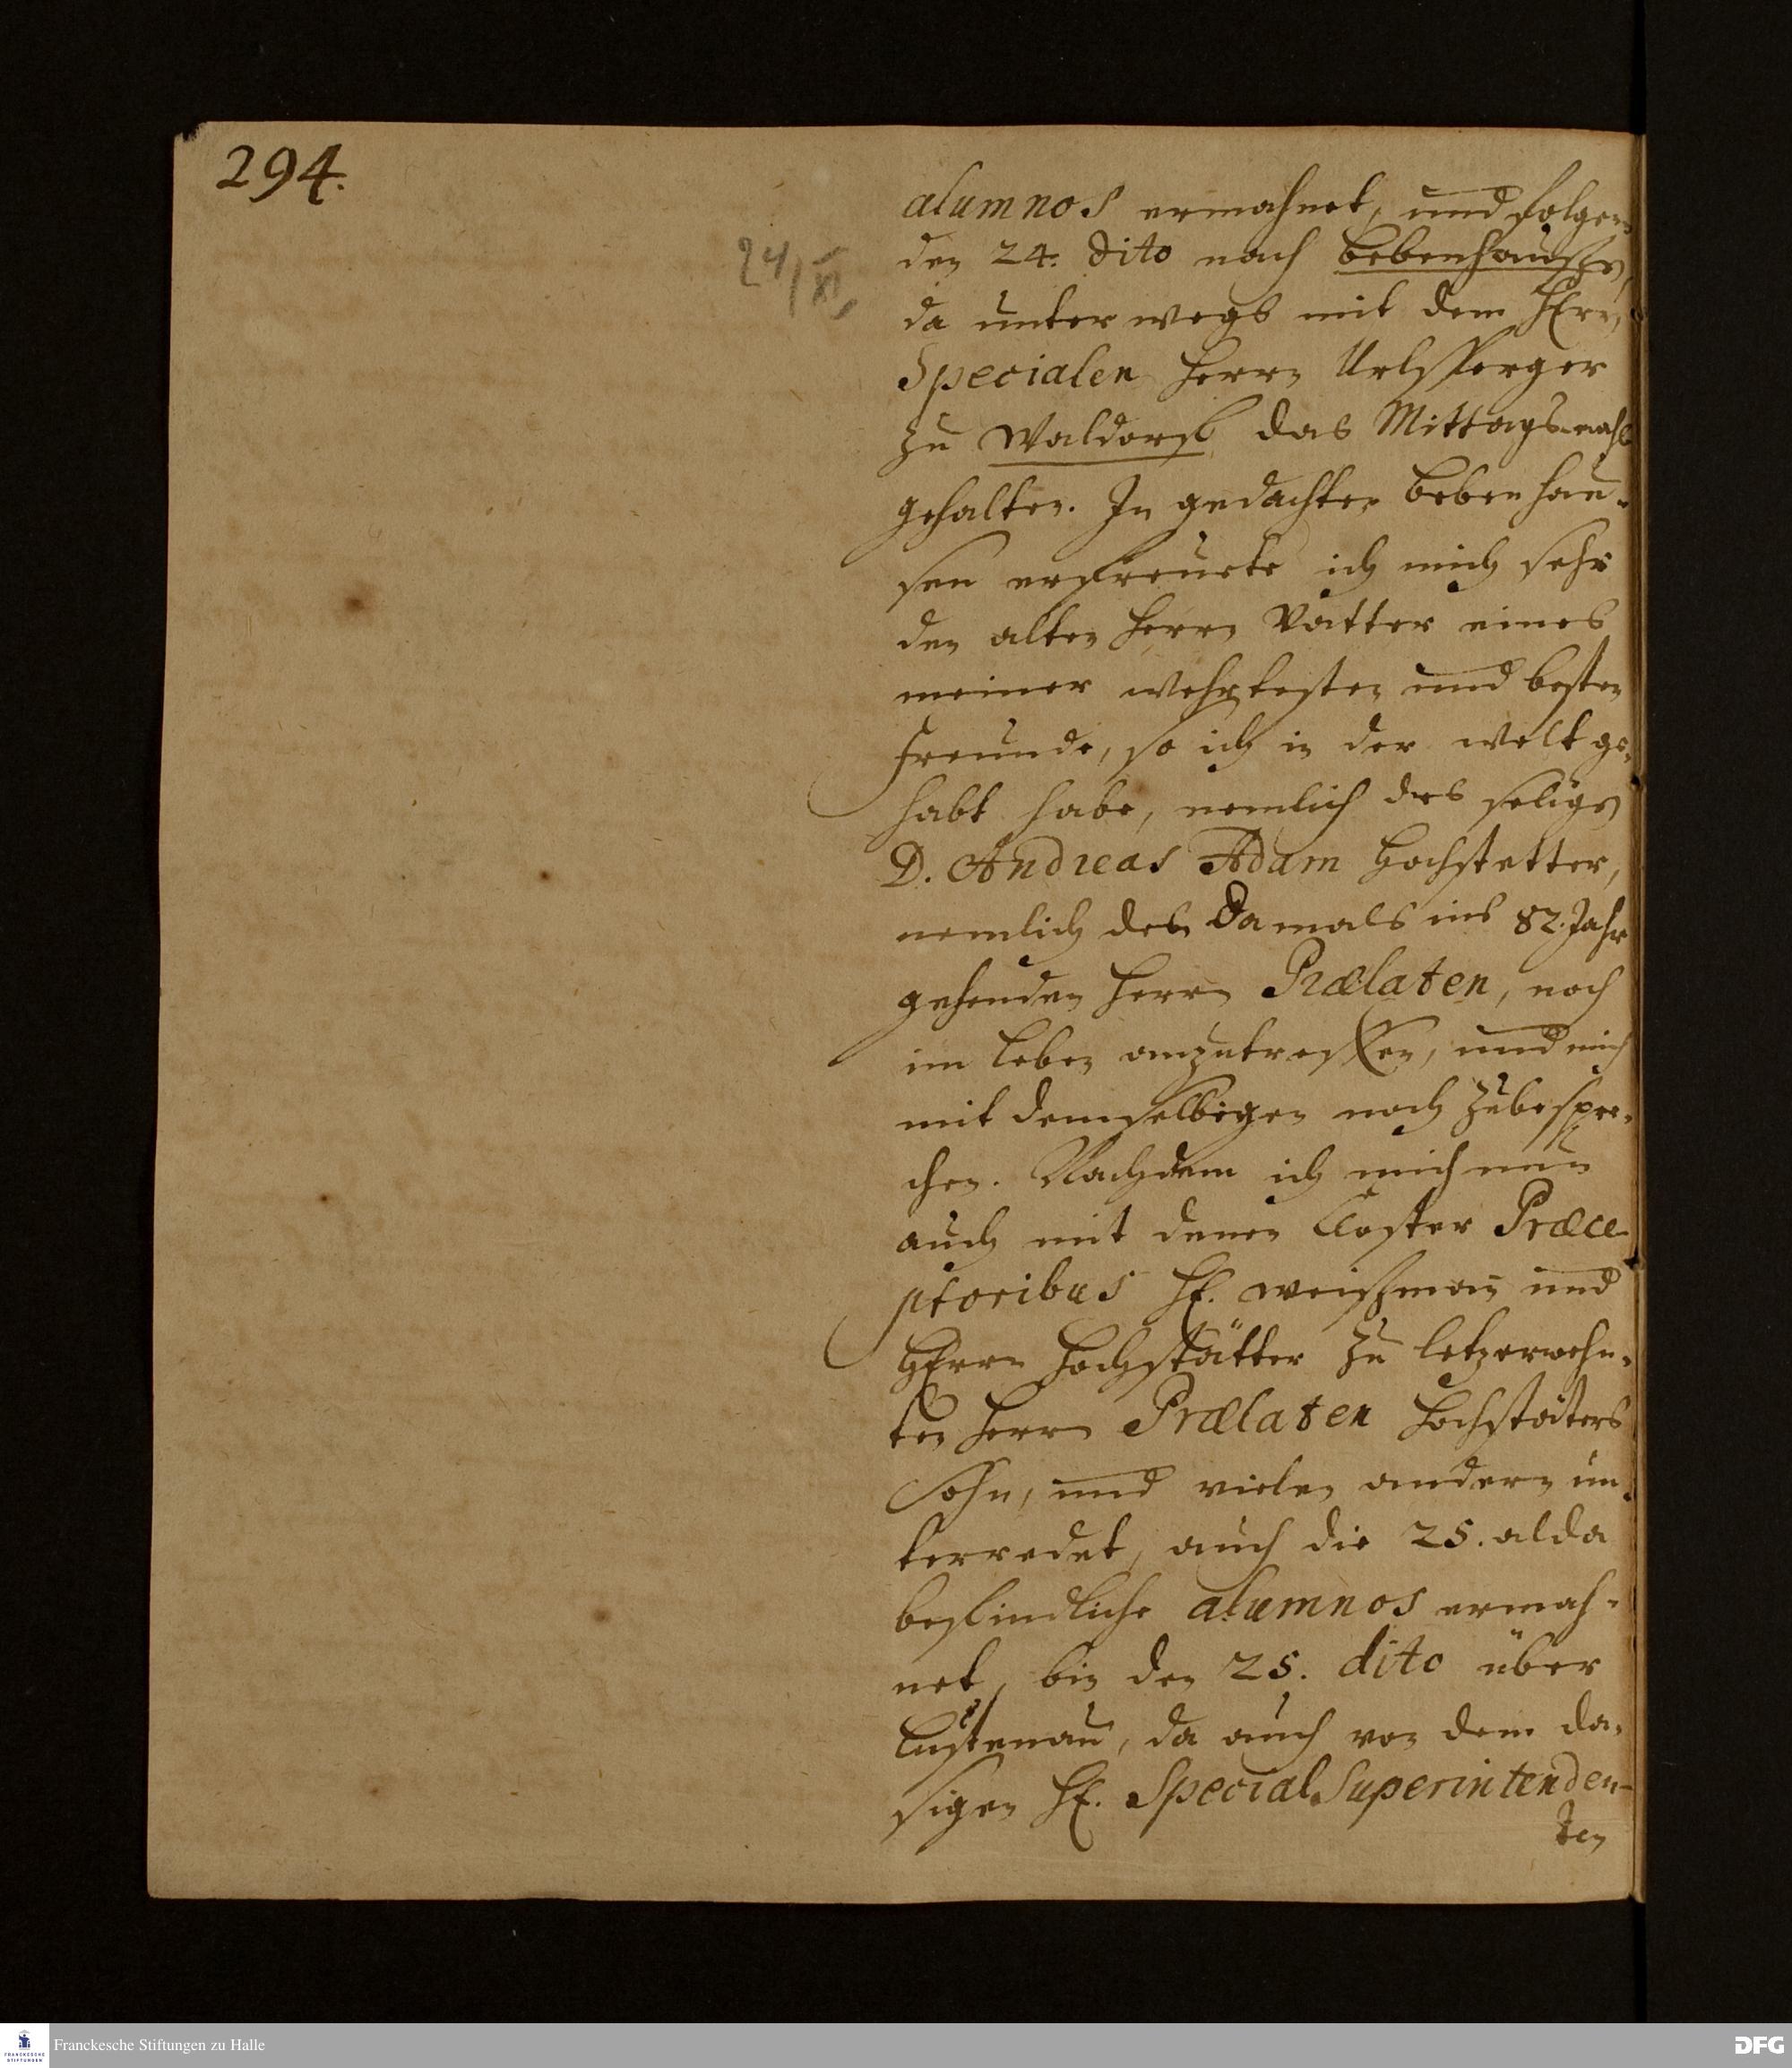 294.
24/XI.
alumnos ermahnet, und folgen
den 24. dito nach bebenhausen,
da unterwegs mit dem HErrn
Specialen Herrn Urlsperger
zu Waldorff das Mittags-mahl
gehalten. In gedachten beben hau-
sen erfreuete ich mich sehr
den alten Herrn Vatter eines
meiner wehrtesten und besten
Freunde, so ich in der welt ge-
habt habe, nemlich des seligen
D. Andreas Adam Hochstetter,
nemlich des damals ins 82. Jahr
gehenden Herrn Prælaten, noch
im leben anzutreffen, und mich
mit demselbigen noch zubespre-
chen. Nachdem ich mich nun
auch mit denen Closter Præce-
ptoribus H. weißman und
HErrn Hochstätter zu letzerwehn-
ten Herrn Prælaten Hochstäters
Sohn, und vielen andern un-
terredet, auch die 25. alda
befindliche alumnos ermah-
net, bin den 25. dito über
Lustenau, da auch von dem da-
sigen H. Special Superintenden-
ten
Franckesche Stiftungen zu Halle
FRANCKESCHE
STIFTUNGEN
DFG